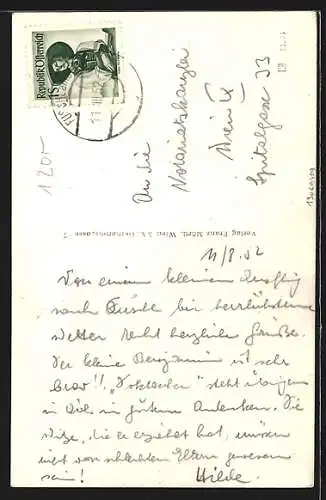 Republik Österreich
1 S
11.III.52
1205
An die
Notariatskanzlei
Wien IX
Spitalgasse 33
Verlag Franz Mörtl, Wien
11/8.52
Von einem kleinen Ausflug
nach bei herrlichstem
Wetter recht herzliche Grüße.
Der kleine Benjamin ist sehr
brav!! steht übrigens
in in gutem Andenken. Die
Witze, die er erzählt hat, müssen
nicht von schlechten Eltern gewesen
sein! Hilde.